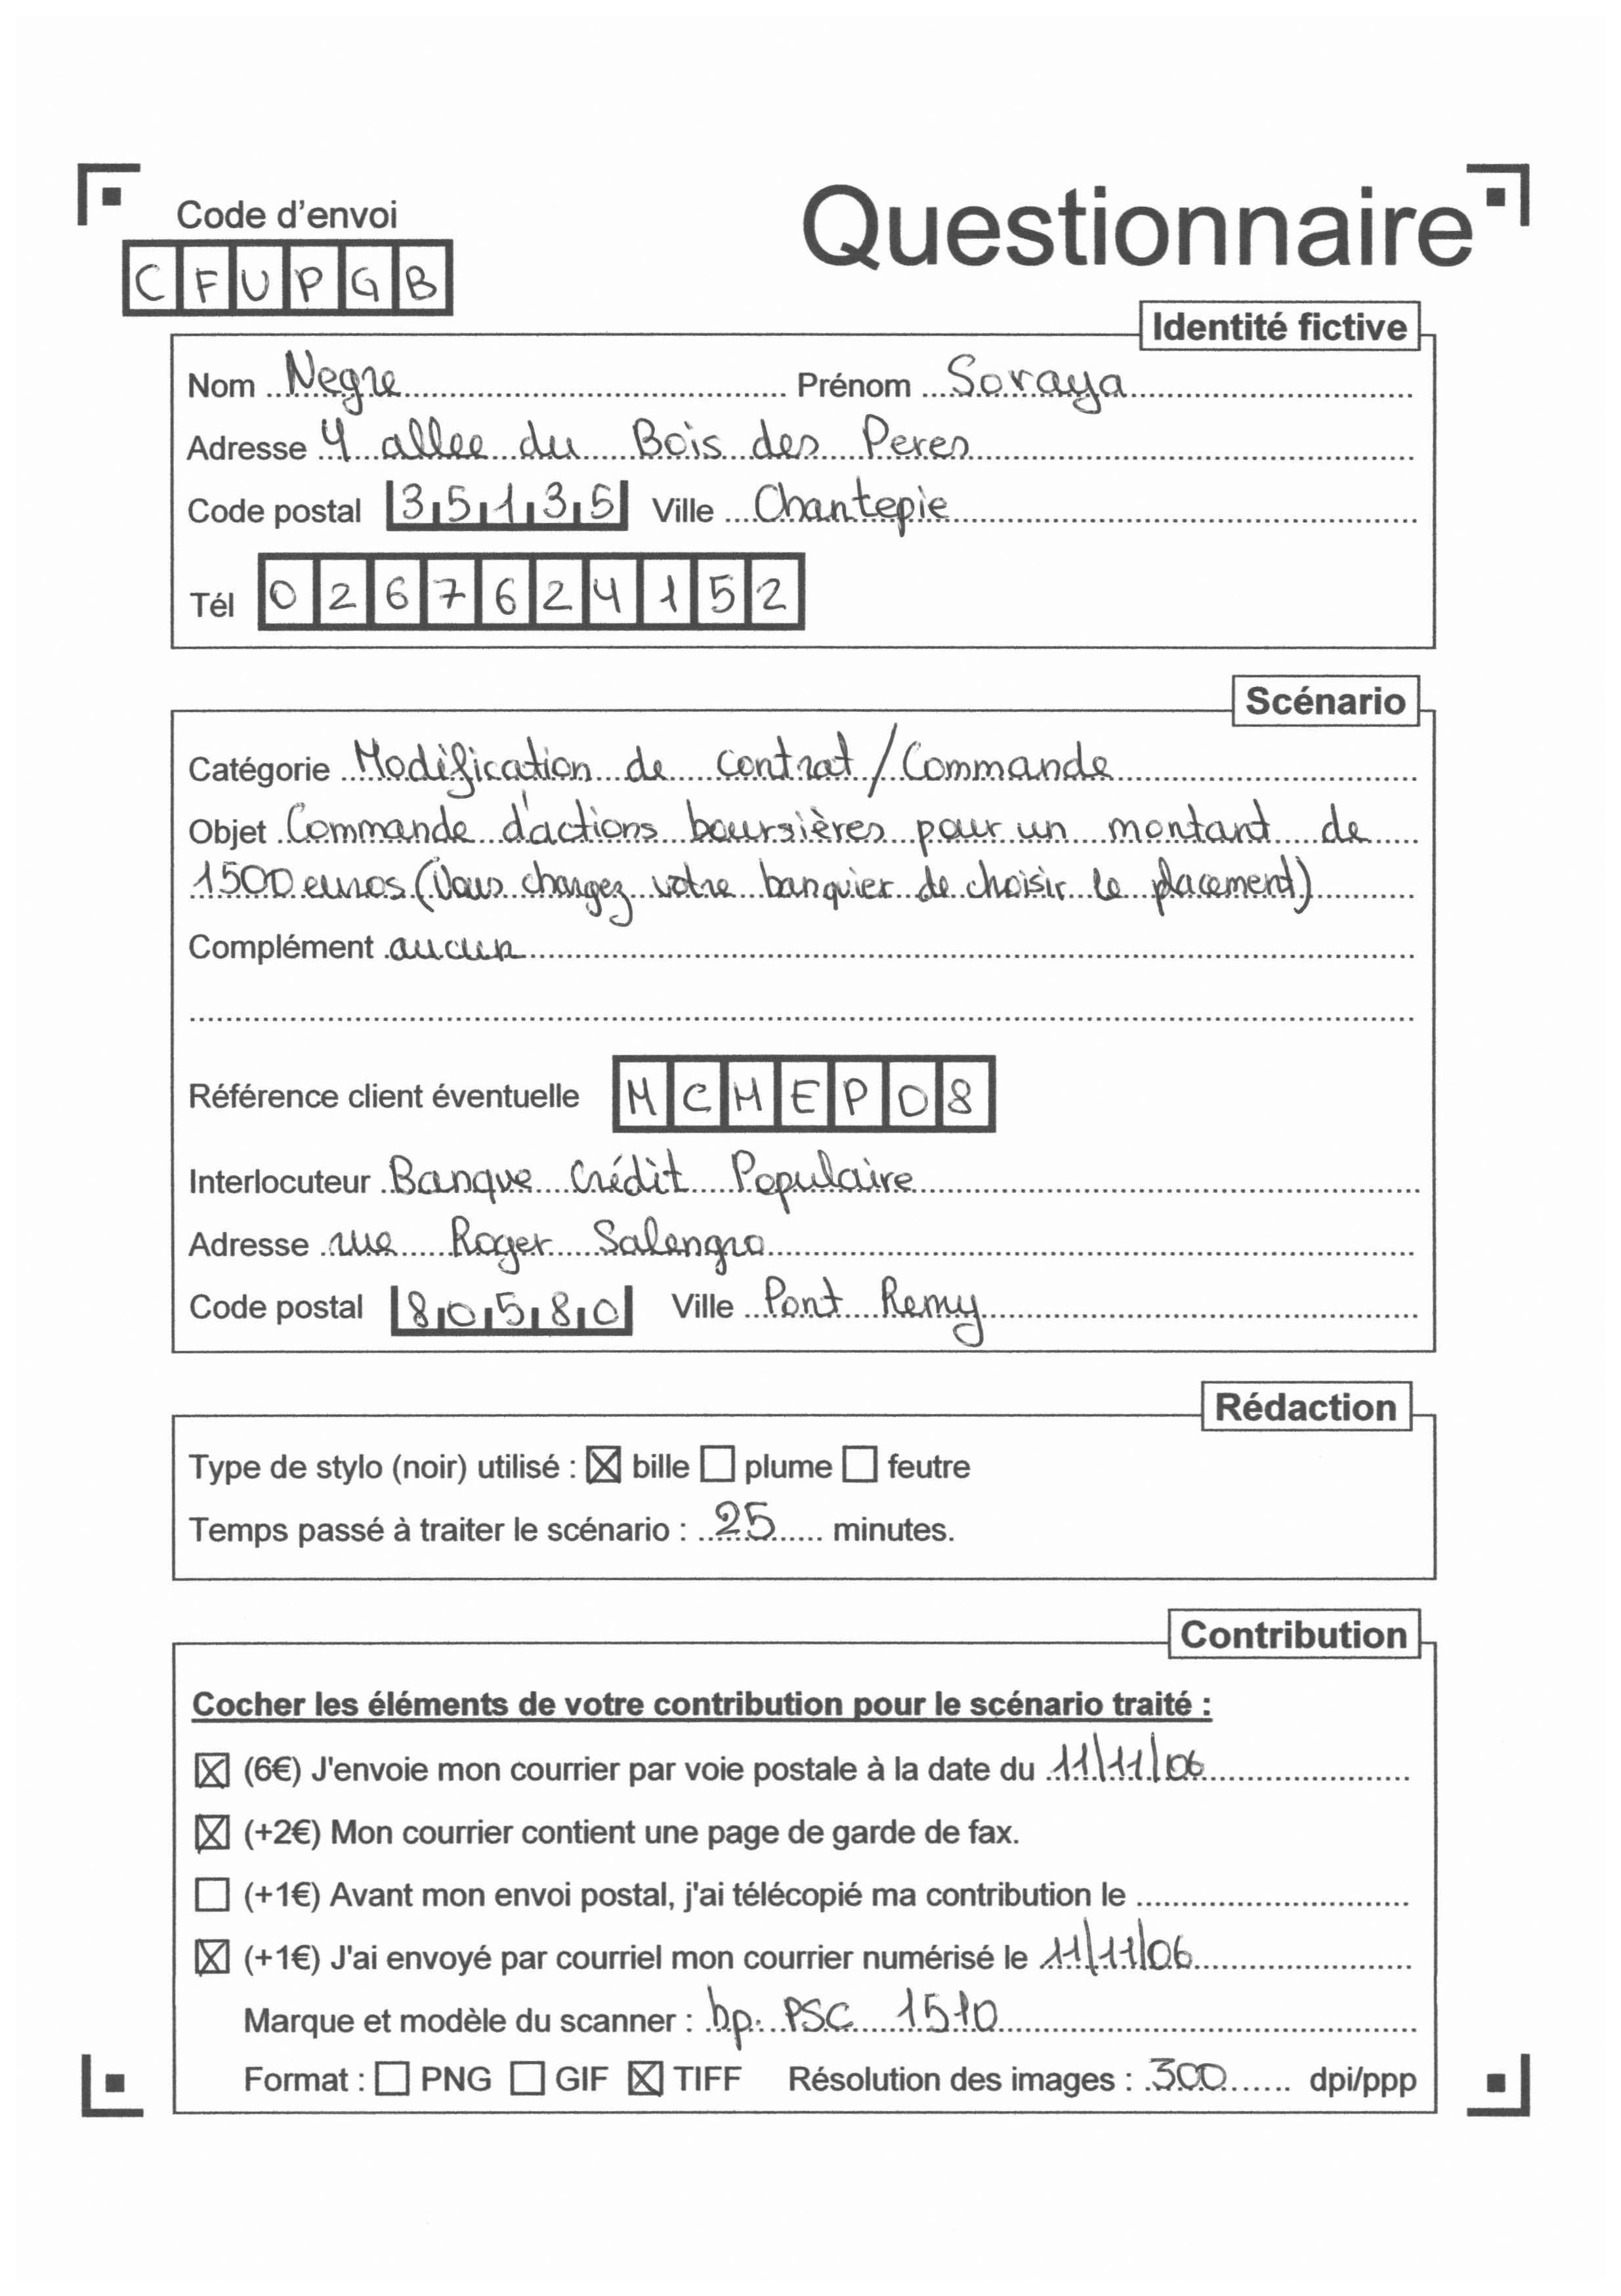 Code d'envoi
Questionnaire
CFUPGB
Identité fictive
Nom Negre Prénom Soraya
Adresse 4 allee du Bois des Peres
Code postal 35135 Ville Chantepie
Tél 0267624152
Scénario
Catégorie Modification de contrat / Commande
Objet Commande d'actions boursières pour un montant de
1500 euros (Vous chargez votre banquier de choisir le placement)
Complément aucun
Référence client éventuelle MCMEP08
Interlocuteur Banque Crédit Populaire
Adresse rue Roger Salengro
Code postal 80580 Ville Pont Remy
Rédaction
Type de stylo (noir) utilisé : ☒ bille ☐ plume ☐ feutre
Temps passé à traiter le scénario : 25 minutes.
Contribution
Cocher les éléments de votre contribution pour le scénario traité :
☒ (6€) J'envoie mon courrier par voie postale à la date du 11/11/06
☒ (+2€) Mon courrier contient une page de garde de fax.
☐ (+1€) Avant mon envoi postal, j'ai télécopié ma contribution le
☒ (+1€) J'ai envoyé par courriel mon courrier numérisé le 11/11/06
Marque et modèle du scanner : hp. PSC 1510
Format : ☐ PNG ☐ GIF ☒ TIFF Résolution des images : 300 dpi/ppp